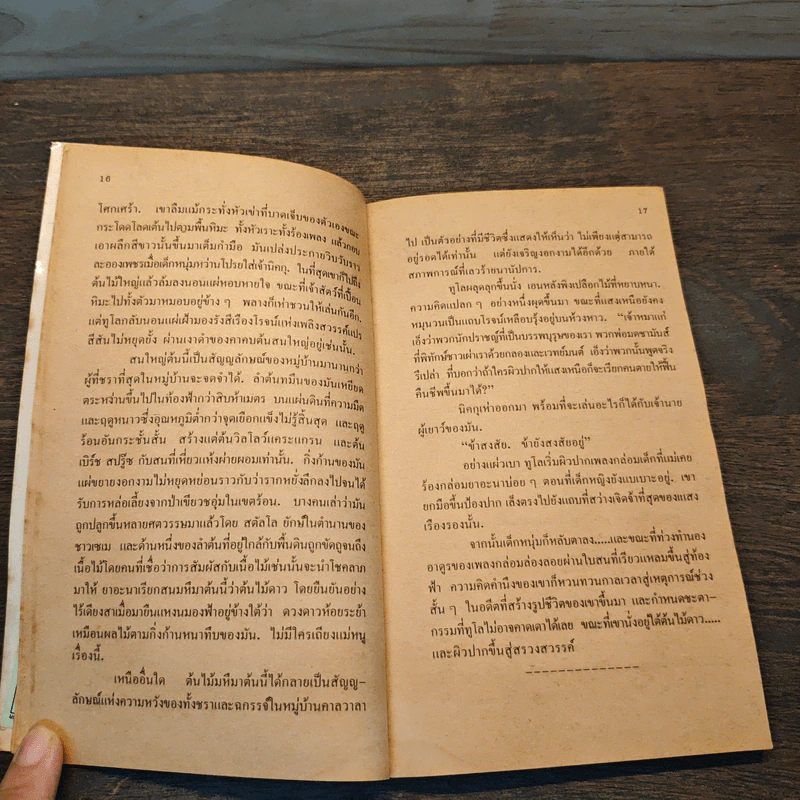 16
โศกเศร้า. เขาลืมแม้กระทั่งหัวเข่าที่บาดเจ็บของตัวเองขณะ
กระโดดโลดเต้นไปตามพื้นหิมะ ทั้งหัวเราะทั้งร้องเพลง แล้วกอบ
เอาผลึกสีขาวนั้นขึ้นมาเต็มกำมือ มันเปล่งประกายวิบวับราว
ละอองเพชรเมื่อเด็กหนุ่มหว่านโปรยใส่เจ้านิคกุ. ในที่สุดเขาก็ไปถึง
ต้นไม้ใหญ่แล้วล้มลงนอนแผ่หอบหายใจ ขณะที่เจ้าสัตว์ที่เปื้อน
หิมะไปทั้งตัวมาหมอบอยู่ข้าง ๆ พลางก็เห่าชวนให้เล่นกันอีก.
แต่ทูโลกลับนอนแผ่เฝ้ามองรังสีเรืองโรจน์แห่งเพลิงสวรรค์แปร
สีสันไม่หยุดยั้ง ผ่านเงาดำของคาคบต้นสนใหญ่อยู่เช่นนั้น.
สนใหญ่ต้นนี้เป็นสัญญลักษณ์ของหมู่บ้านมานานกว่า
ผู้ที่ชราที่สุดในหมู่บ้านจะจดจำได้. ลำต้นทมึนของมันเหยียด
ตระหง่านขึ้นไปในท้องฟ้ากว่าสิบห้าเมตร บนแผ่นดินที่ความมืด
และฤดูหนาวซึ่งอุณหภูมิต่ำกว่าจุดเยือกแข็งไม่รู้สิ้นสุด และฤดู
ร้อนอันกระชั้นสั้น สร้างแต่ต้นวิลโลว์แคระแกรน และต้น
เบิร์ช สปรู๊ซ กับสนที่เหี่ยวแห้งผ่ายผอมเท่านั้น. กิ่งก้านของมัน
แผ่ขยายงอกงามไม่หยุดหย่อนราวกับว่ารากหยั่งลึกลงไปจนได้
รับการหล่อเลี้ยงจากป่าเขียวชอุ่มในเขตร้อน. บางคนเล่าว่ามัน
ถูกปลูกขึ้นหลายศตวรรษมาแล้วโดย สตัลโล ยักษ์ในตำนานของ
ชาวเซเม และด้านหนึ่งของลำต้นที่อยู่ใกล้กับพื้นดินถูกขัดถูจนถึง
เนื้อไม้โดยคนที่เชื่อว่าการสัมผัสกับเนื้อไม้เช่นนั้นจะนำโชคลาภ
มาให้ ยาอะนาเรียกสนมหึมาต้นนี้ว่าต้นไม้ดาว โดยยืนยันอย่าง
ไร้เดียงสาเมื่อมายืนแหงนมองฟ้าอยู่ข้างใต้ว่า ดวงดาวห้อยระย้า
เหมือนผลไม้ตามกิ่งก้านหนาทึบของมัน. ไม่มีใครเถียงแม่หนู
เรื่องนี้.
เหนืออื่นใด ต้นไม้มหึมาต้นนี้ได้กลายเป็นสัญญ-
ลักษณ์แห่งความหวังของทั้งชราและฉกรรจ์ในหมู่บ้านคาลวาลา
17
ไป เป็นตัวอย่างที่มีชีวิตซึ่งแสดงให้เห็นว่า ไม่เพียงแต่สามารถ
อยู่รอดได้เท่านั้น แต่ยังเจริญงอกงามได้อีกด้วย ภายใต้
สภาพการณ์ที่เลวร้ายนานัปการ.
ทูโลผลุดลุกขึ้นนั่ง เอนหลังพิงเปลือกไม้ที่หยาบหนา.
ความคิดแปลก ๆ อย่างหนึ่งผุดขึ้นมา ขณะที่แสงเหนือยังคง
หมุนวนเป็นแถบโรจน์เหลือบรุ้งอยู่บนห้วงหาว. “เจ้าหมาแก่
เอ็งว่าพวกนักปราชญ์ที่เป็นบรรพบุรุษของเรา พวกพ่อมดชามันส์
ที่พิทักษ์ชาวเผ่าเราด้วยกลองและเวทย์มนต์ เอ็งว่าพวกนั้นพูดจริง
รึเปล่า ที่บอกว่าถ้าใครผิวปากให้แสงเหนือก็จะเรียกคนตายให้ฟื้น
คืนชีพขึ้นมาได้?”
นิคกุเห่าออกมา พร้อมที่จะเล่นอะไรก็ได้กับเจ้านาย
ผู้เยาว์ของมัน.
“ข้าสงสัย. ข้ายังสงสัยอยู่”
อย่างแผ่วเบา ทูโลเริ่มผิวปากเพลงกล่อมเด็กที่แม่เคย
ร้องกล่อมยาอะนาบ่อย ๆ ตอนที่เด็กหญิงยังแบเบาะอยู่. เขา
ยกมือขึ้นป้องปาก เล็งตรงไปยังแถบที่สว่างเจิดจ้าที่สุดของแสง
เรืองรองนั้น.
จากนั้นเด็กหนุ่มก็หลับตาลง.....และขณะที่ท่วงทำนอง
อาดูรของเพลงกล่อมล่องลอยผ่านใบสนที่เรียวแหลมขึ้นสู่ท้อง
ฟ้า ความคิดคำนึงของเขาก็หวนทวนกาลเวลาสู่เหตุการณ์ช่วง
สั้น ๆ ในอดีตที่สร้างรูปชีวิตของเขาขึ้นมา และกำหนดชะตา-
กรรมที่ทูโลไม่อาจคาดเดาได้เลย ขณะที่เขานั่งอยู่ใต้ต้นไม้ดาว.....
และผิวปากขึ้นสู่สรวงสวรรค์